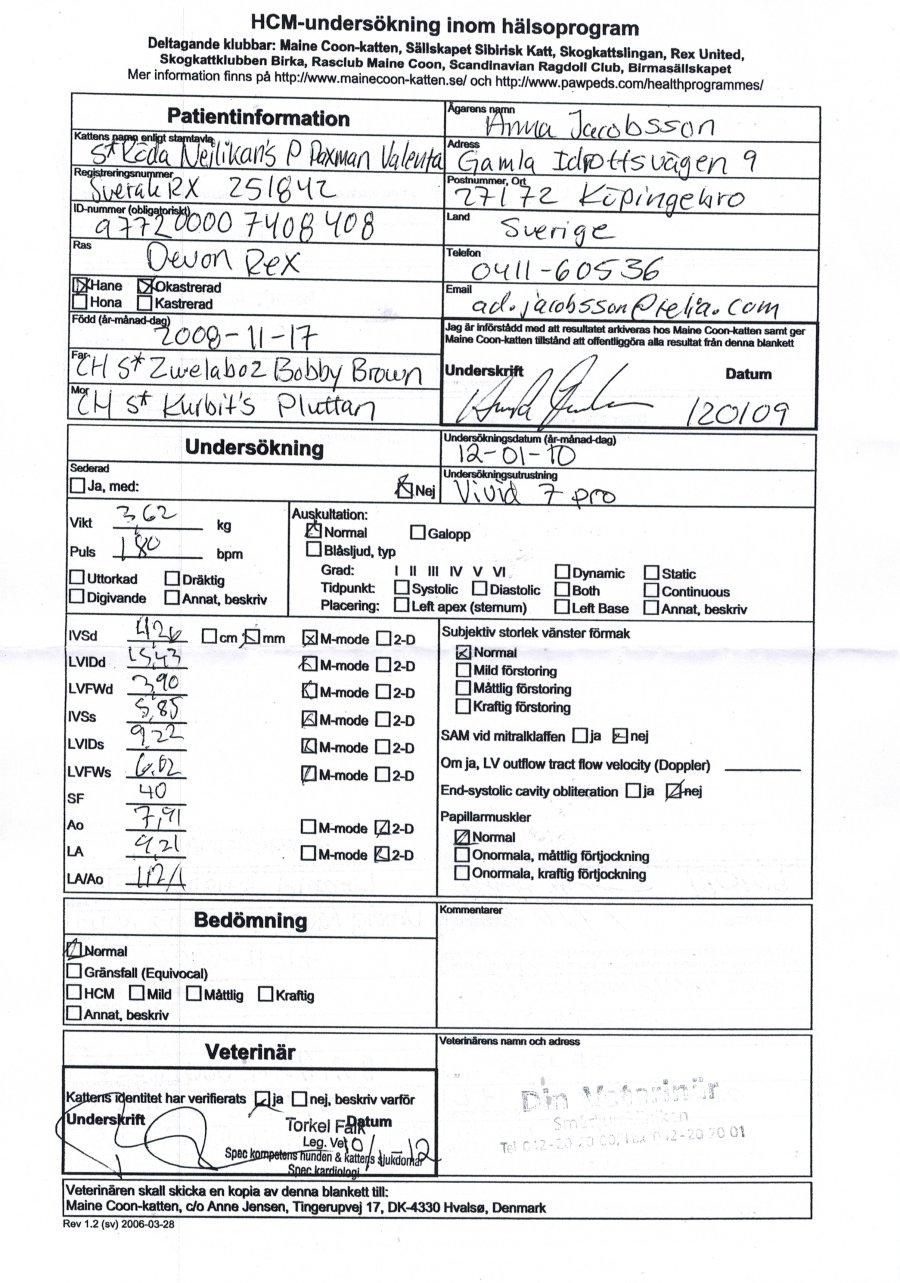 HCM-undersökning inom hälsoprogram
Deltagande klubbar: Maine Coon-katten, Sällskapet Sibirisk Katt, Skogkattslingan, Rex United,
Skogkattklubben Birka, Rasclub Maine Coon, Scandinavian Ragdoll Club, Birmasällskapet
Mer information finns på http://www.mainecoon-katten.se/ och http://www.pawpeds.com/healthprogrammes/
Patientinformation
Kattens namn enligt stamtavla
S* Röda Nejlikan's P Paxman Valenta
Registreringsnummer
Sverak RX 251842
ID-nummer (obligatoriskt)
977200007408408
Ras
Devon Rex
Hane Okastrerad
Hona Kastrerad
Född (år-månad-dag)
2008-11-17
Far
CH S* Zwelaboz Bobby Brown
Mor
CH S* Kurbit's Pluttan
Ägarens namn
Anna Jacobsson
Adress
Gamla Idrottsvägen 9
Postnummer, Ort
27172 Köpingebro
Land
Sverige
Telefon
0411-60536
Email
ad.jacobsson@telia.com
Jag är införstådd med att resultatet arkiveras hos Maine Coon-katten samt ger
Maine Coon-katten tillstånd att offentliggöra alla resultat från denna blankett
Underskrift Datum
120109
Undersökning
Sederad
Ja, med: Nej
Undersökningsdatum (år-månad-dag)
12-01-10
Undersökningsutrustning
Vivid 7 pro
Vikt 3,62 kg
Puls 180 bpm
Uttorkad Dräktig
Digivande Annat, beskriv
Auskultation:
Normal Galopp
Blåsljud, typ
Grad: I II III IV V VI Dynamic Static
Tidpunkt: Systolic Diastolic Both Continuous
Placering: Left apex (sternum) Left Base Annat, beskriv
IVSd 4,26 cm mm M-mode 2-D
LVIDd 15,43 M-mode 2-D
LVFWd 3,90 M-mode 2-D
IVSs 5,85 M-mode 2-D
LVIDs 9,22 M-mode 2-D
LVFWs 6,62 M-mode 2-D
SF 40
Ao 7,91 M-mode 2-D
LA 9,21 M-mode 2-D
LA/Ao
Subjektiv storlek vänster förmak
Normal
Mild förstoring
Måttlig förstoring
Kraftig förstoring
SAM vid mitralklaffen ja nej
Om ja, LV outflow tract flow velocity (Doppler)
End-systolic cavity obliteration ja nej
Papillarmuskler
Normal
Onormala, måttlig förtjockning
Onormala, kraftig förtjockning
Bedömning
Normal
Gränsfall (Equivocal)
HCM Mild Måttlig Kraftig
Annat, beskriv
Kommentarer
Veterinär
Kattens identitet har verifierats ja nej, beskriv varför
Underskrift Datum
Torkel Falk
Leg. Vet
Spec kompetens hunden & kattens sjukdomar
Spec kardiologi
Veterinärens namn och adress
Din Veterinär
Veterinären skall skicka en kopia av denna blankett till:
Maine Coon-katten, c/o Anne Jensen, Tingerupvej 17, DK-4330 Hvalsø, Denmark
Rev 1.2 (sv) 2006-03-28